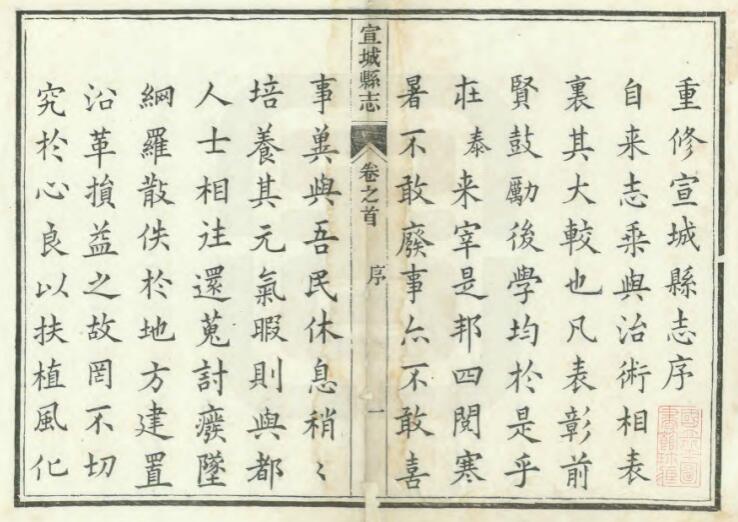 重修宣城縣志序
自来志乘與治術相表
裏其大較也凡表彰前
賢鼓勵後學均於是乎
在泰来宰是邦四閱寒
暑不敢廢事亦不敢喜
宣城縣志
卷之首
序
一
事兾與吾民休息稍〻
培養其元氣暇則與都
人士相往還蒐討癈墜
綱羅散佚於地方建置
沿革損益之故罔不切
究於心良以扶植風化